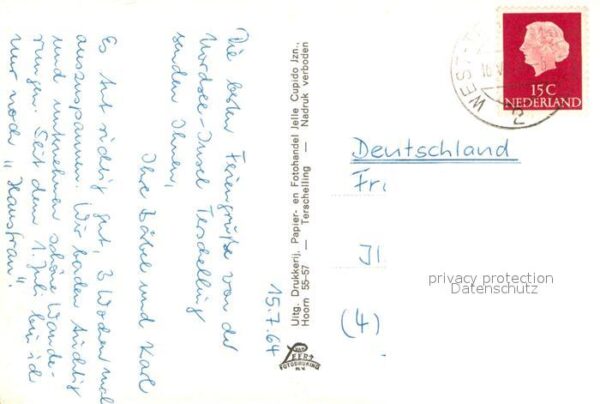 15.7.64
Die besten Feriengrüße von der
Nordsee-Insel Terschelling
senden Ihnen,
Ihre Bärbel und Karl
Es tut richtig gut, 3 Wochen mal
auszuspannen. Wir baden tüchtig
und unternehmen schöne Wande-
rungen. Seit dem 1. Juli bin ich
nur noch „Hausfrau".
Uitg. Drukkerij, Papier- en Fotohandel Jelle Cupido Jzn.,
Hoorn 55-57 — Terschelling — Nadruk verboden
VAN
LEER'S
FOTODRUKIND.
N.V.
WEST
15 C
NEDERLAND
2
Deutschland
Fr.
(4)
privacy protection
Datenschutz